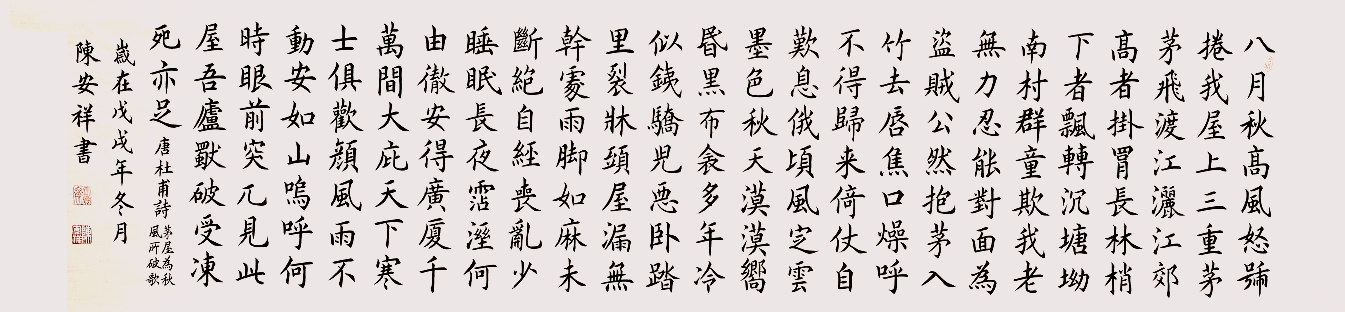 八月秋髙風怒號
捲我屋上三重茅
茅飛渡江灑江郊
髙者掛罥長林梢
下者飄轉沉塘坳
南村群童欺我老
無力忍能對面為
盜賊公然抱茅入
竹去唇焦口燥呼
不得歸来倚仗自
歎息俄頃風定雲
墨色秋天漠漠嚮
昬黑布衾多年冷
似銕驕児悪卧踏
里裂牀頭屋漏無
幹處雨脚如麻未
斷絕自經喪亂少
睡眠長夜霑溼何
由徹安得廣厦千
萬間大庇天下寒
士俱歡顏風雨不
動安如山嗚呼何
時眼前突兀見此
屋吾廬獨破受凍
死亦足 唐杜甫詩 茅屋為秋
風所破歌
歲在戊戌年冬月
陳安祥書